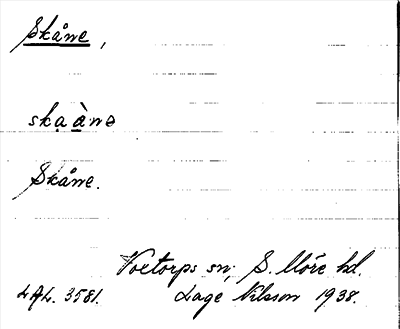 Skåne,
skạạ̀nə
Skåne.
Voxtorps sn, S. Möre hd.
LAL. 3581. Lage Nilsson 1938.